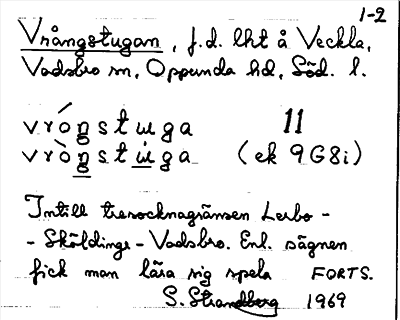 1-2
Vrångstugan, f.d. lht å Veckla,
Vadsbro sn, Oppunda hd, Söd. l.
vróngstuga 11
vròngstuga (ek 9G8i)
Intill tresocknagränsen Lerbo -
- Sköldinge - Vadsbro. Enl. sägnen
fick man lära sig spela FORTS.
S. Strandberg 1969